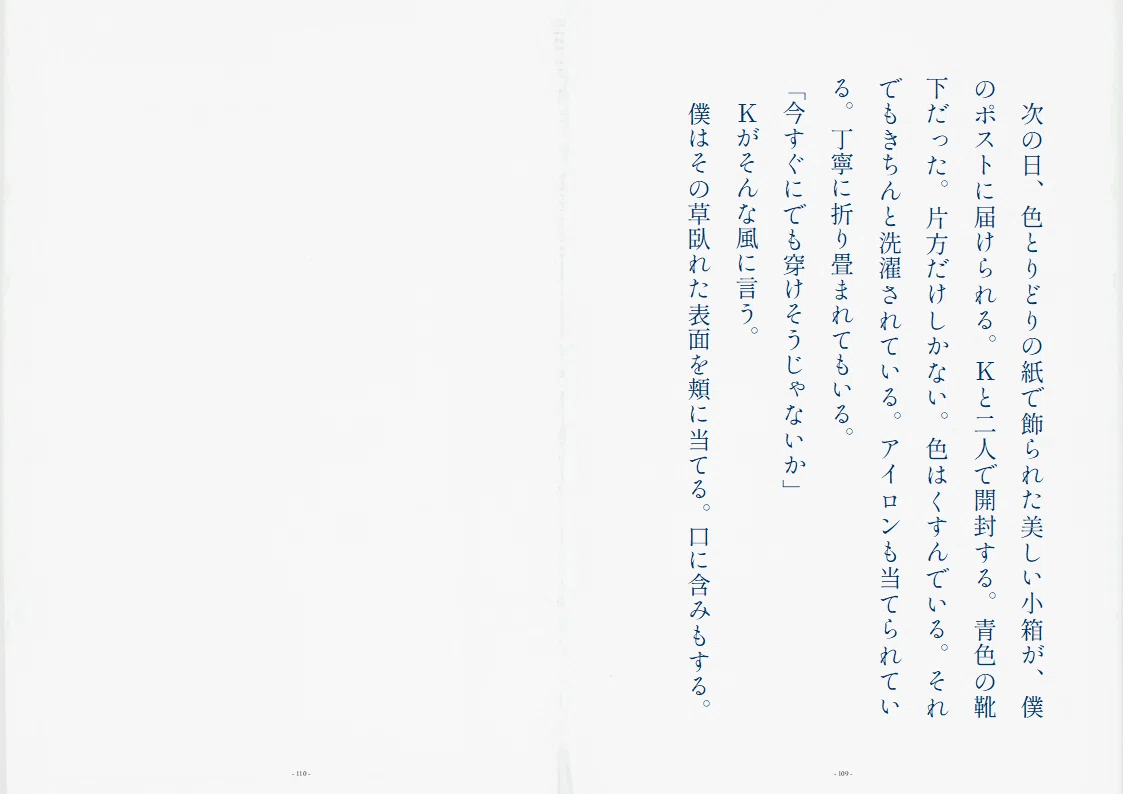 次の日、色とりどりの紙で飾られた美しい小箱が、僕
のポストに届けられる。Kと二人で開封する。青色の靴
下だった。片方だけしかない。色はくすんでいる。それ
でもきちんと洗濯されている。アイロンも当てられてい
る。丁寧に折り畳まれてもいる。
「今すぐにでも穿けそうじゃないか」
Kがそんな風に言う。
僕はその草臥れた表面を頬に当てる。口に含みもする。
- 109 -
- 110 -